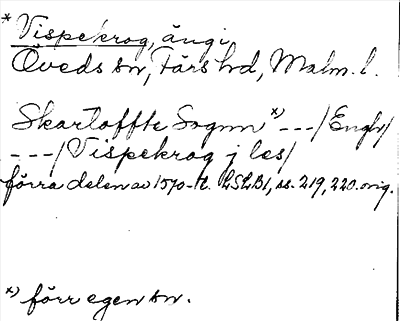 * Vispekrog, äng i
Öveds sn, Färs hd, Malm. l.
Skartoffte Sognn *) --- / Engh /
--- / Vispekrog j les /
förra delen av 1570-t. LSLB1, ss. 219, 220. orig.
*) förr egen sn.